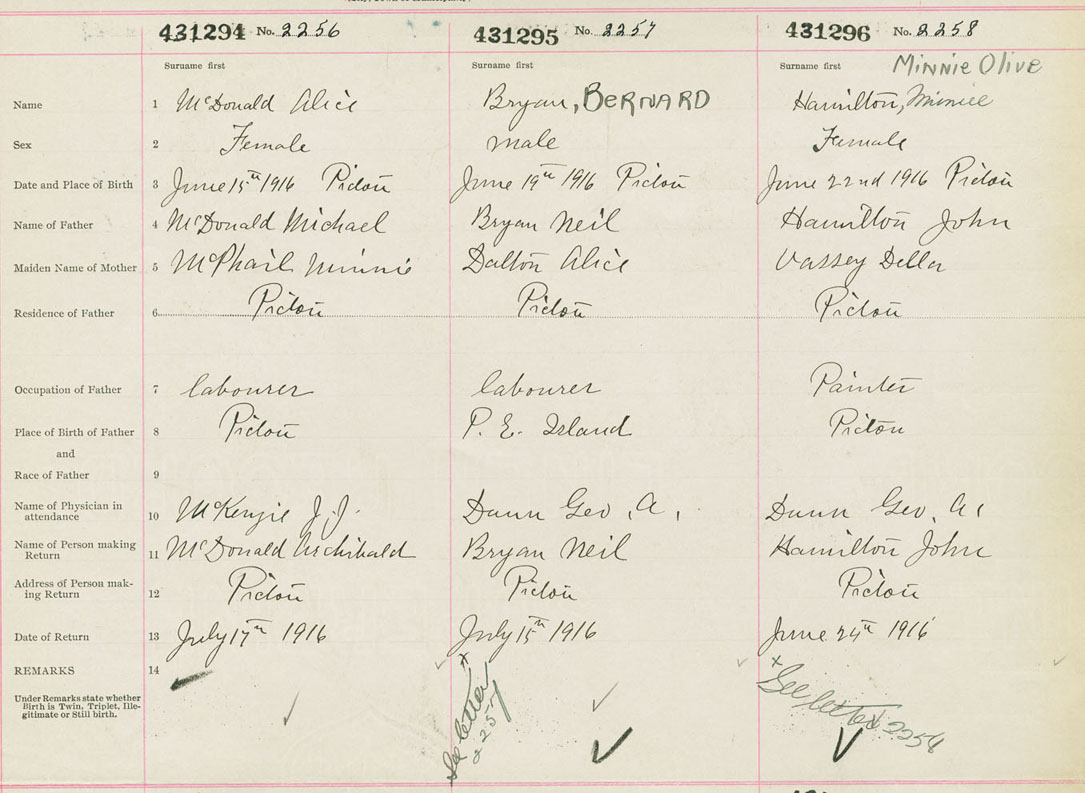 431294 No. 2256 431295 No. 2257 431296 No. 2258
Surname first Surname first Surname first Minnie Olive
Name 1 McDonald Alice Bryan, BERNARD Hamilton, Minnie
Sex 2 Female male Female
Date and Place of Birth 3 June 15th 1916 Pictou June 19th 1916 Pictou June 22nd 1916 Pictou
Name of Father 4 McDonald Michael Bryan Neil Hamilton John
Maiden Name of Mother 5 McPhail Minnie Dalton Alice Vassey Della
Residence of Father 6 Pictou Pictou Pictou
Occupation of Father 7 labourer labourer Painter
Place of Birth of Father 8 Pictou P. E. Island Pictou
and
Race of Father 9
Name of Physician in
attendance 10 McKenzie J. J. Dunn Geo. A. Dunn Geo. A.
Name of Person making
Return 11 McDonald Archibald Bryan Neil Hamilton John
Address of Person mak-
ing Return 12 Pictou Pictou Pictou
Date of Return 13 July 17th 1916 July 15th 1916 June 24th 1916
REMARKS 14 x See letter 2257 x See letter 2258
Under Remarks state whether
Birth is Twin, Triplet, Ille-
gitimate or Still birth.